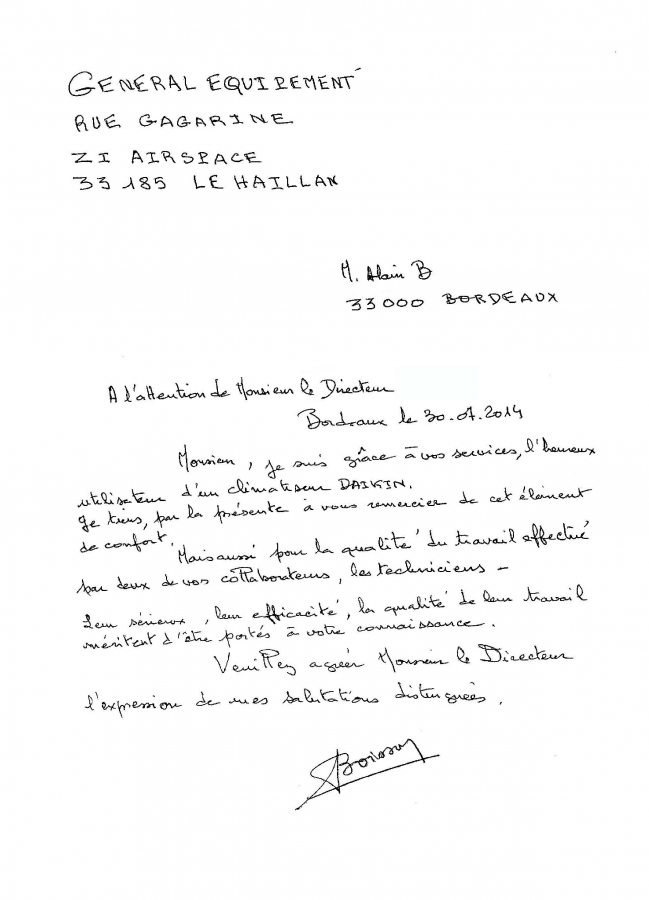 GENERAL EQUIPEMENT
RUE GAGARINE
ZI AIRSPACE
33185 LE HAILLAN
M. Alain B
33000 BORDEAUX
A l'attention de Monsieur le Directeur
Bordeaux le 30.07.2014
Monsieur, je suis grâce à vos services, l'heureux
utilisateur d'un climatiseur DAIKIN.
Je tiens, par la présente à vous remercier de cet élément
de confort.
Mais aussi pour la qualité du travail effectué
par deux de vos collaborateurs, les techniciens -
Leur sérieux, leur efficacité, la qualité de leur travail
méritent d'être portés à votre connaissance.
Veuillez agréer Monsieur le Directeur
l'expression de mes salutations distinguées.